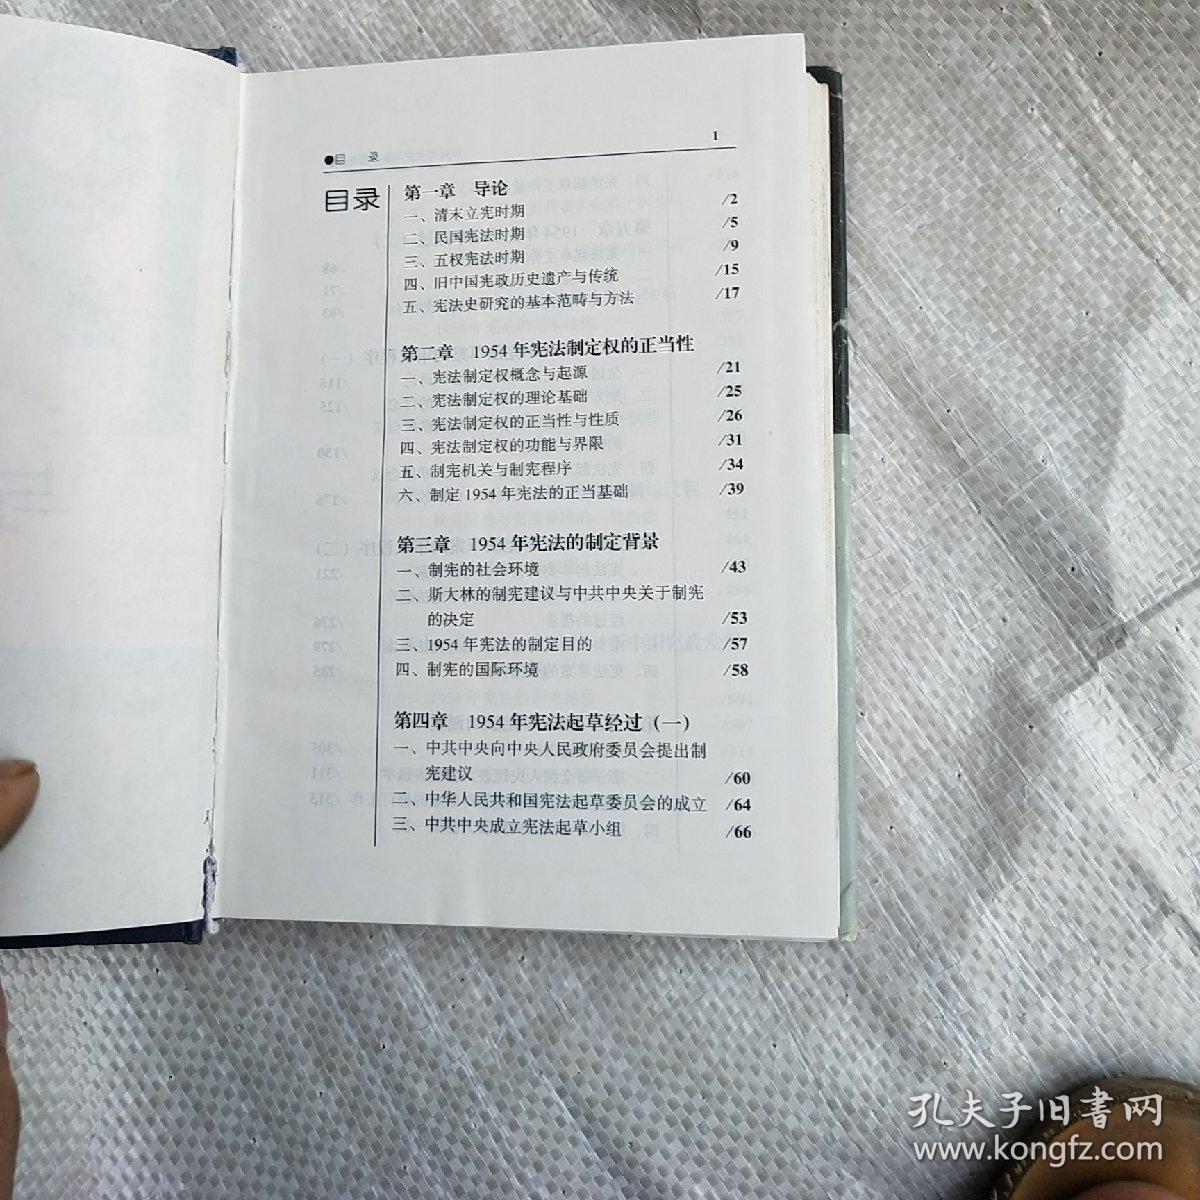 ●目 录 1
目录
第一章 导论
一、清末立宪时期 /2
二、民国宪法时期 /5
三、五权宪法时期 /9
四、旧中国宪政历史遗产与传统 /15
五、宪法史研究的基本范畴与方法 /17
第二章 1954年宪法制定权的正当性
一、宪法制定权概念与起源 /21
二、宪法制定权的理论基础 /25
三、宪法制定权的正当性与性质 /26
四、宪法制定权的功能与界限 /31
五、制宪机关与制宪程序 /34
六、制定1954年宪法的正当基础 /39
第三章 1954年宪法的制定背景
一、制宪的社会环境 /43
二、斯大林的制宪建议与中共中央关于制宪
的决定 /53
三、1954年宪法的制定目的 /57
四、制宪的国际环境 /58
第四章 1954年宪法起草经过（一）
一、中共中央向中央人民政府委员会提出制
宪建议 /60
二、中华人民共和国宪法起草委员会的成立 /64
三、中共中央成立宪法起草小组 /66
孔夫子旧书网
www.kongfz.com